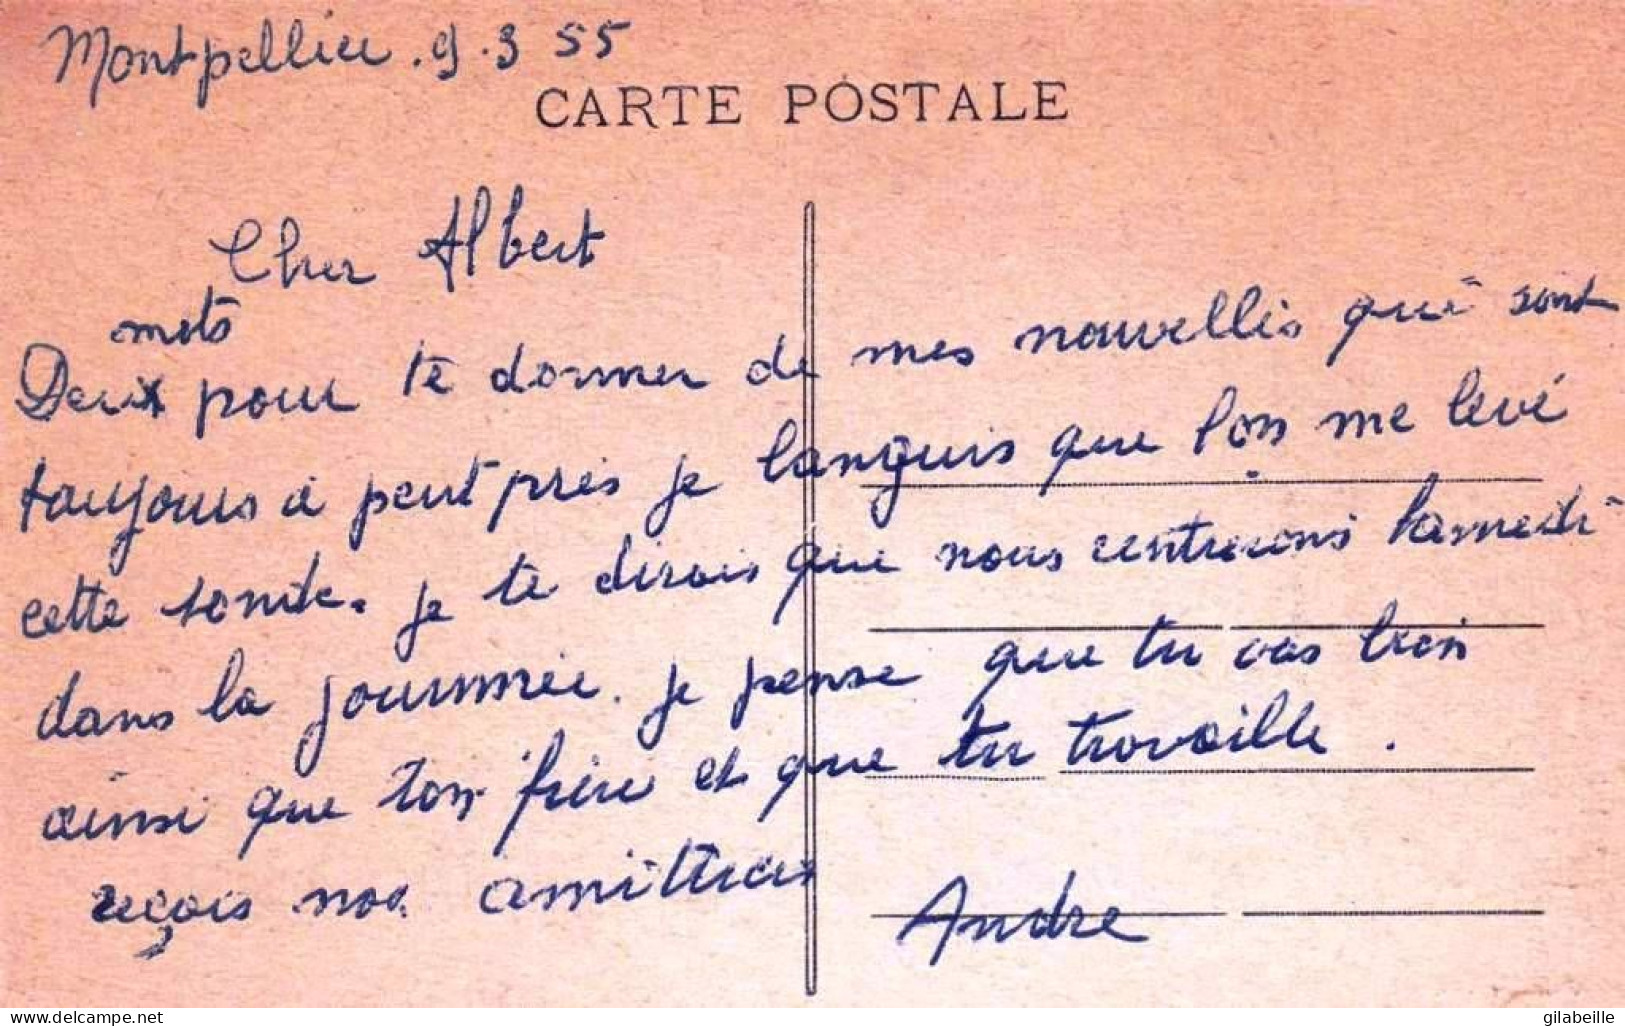 Montpellier. 9.3 55
CARTE POSTALE
Cher Albert
mots
Deux pour te donner de mes nouvelles qui sont
toujours à peut près je languis que l'on me levé
cette sonde. je te dirais que nous rentrerons samedi
dans la journnée. je pense que tu vas bien
ainsi que ton frère et que tu travaille.
reçois nos amitties
Andre
delcampe.net
gilabeille